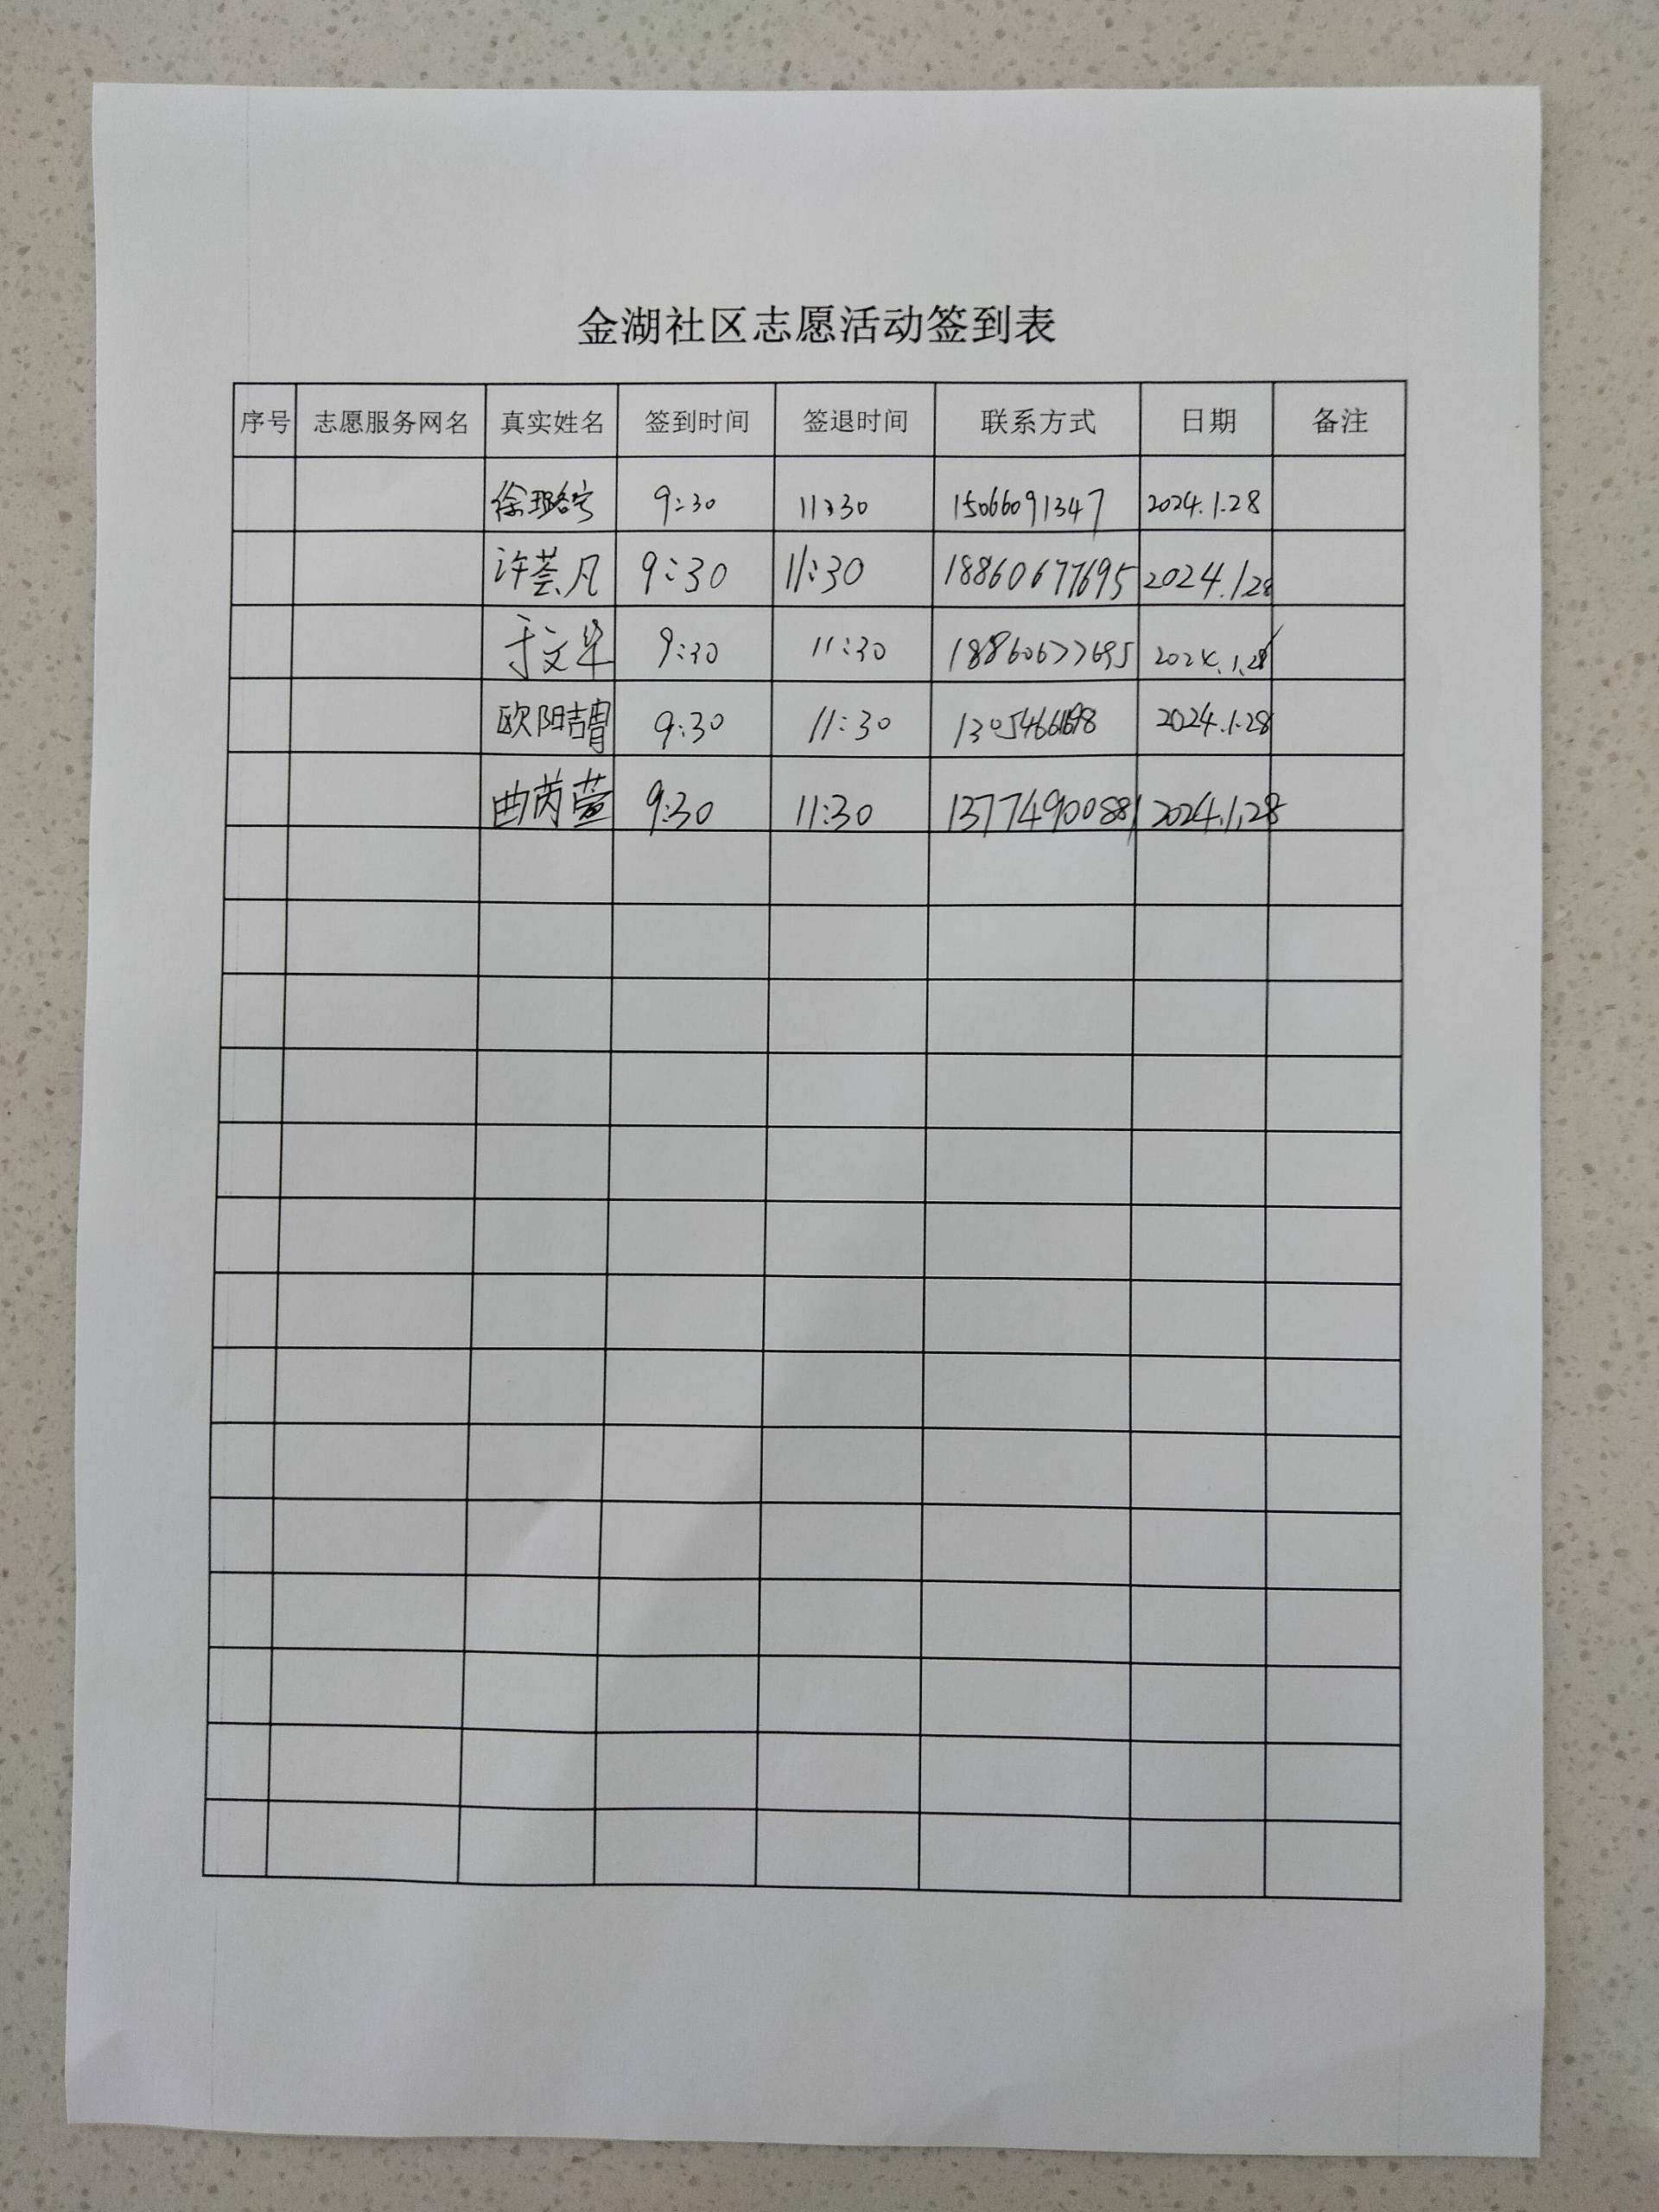 金湖社区志愿活动签到表
序号 志愿服务网名 真实姓名 签到时间 签退时间 联系方式 日期 备注
徐璐宁 9:30 11:30 15066091347 2024.1.28
许荟凡 9:30 11:30 18860677695 2024.1.28
于文华 9:30 11:30 18860677695 2024.1.28
欧阳喆 9:30 11:30 2024.1.28
曲芮萱 9:30 11:30 13774900881 2024.1.28